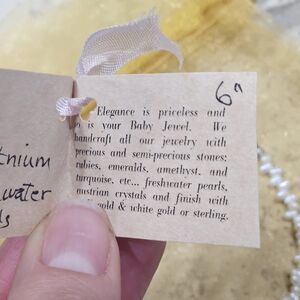 6"
Elegance is priceless and
so is your Baby Jewel. We
handcraft all our jewelry with
precious and semi-precious stones:
rubies, emeralds, amethyst, and
turquoise, etc... freshwater pearls,
austrian crystals and finish with
gold & white gold or sterling.
tnium
water
ls